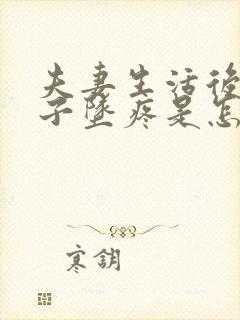 夫妻生活後
子墜疼是怎
寒鈅